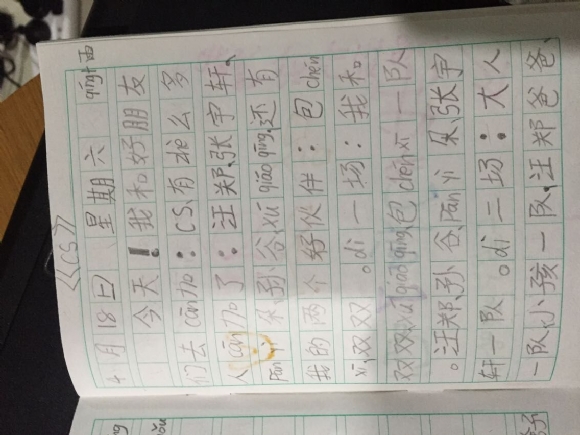 《CS》
4月18日 星期六 qíng
今天!我和好朋友
们去cān加:CS,有那么多
人cān加了:汪郑、张宇轩、
Fàn yi朵、孙谷、xú qiáo qīng,还有
我的两个好伙伴:包chén
xī,双双。di一场:我和
双双、xú qiáo qīng、包chén xī一队
。汪郑、孙谷、Fàn yi朵、张宇
轩一队。di二场:大人
一队,小孩一队。汪郑爸爸、